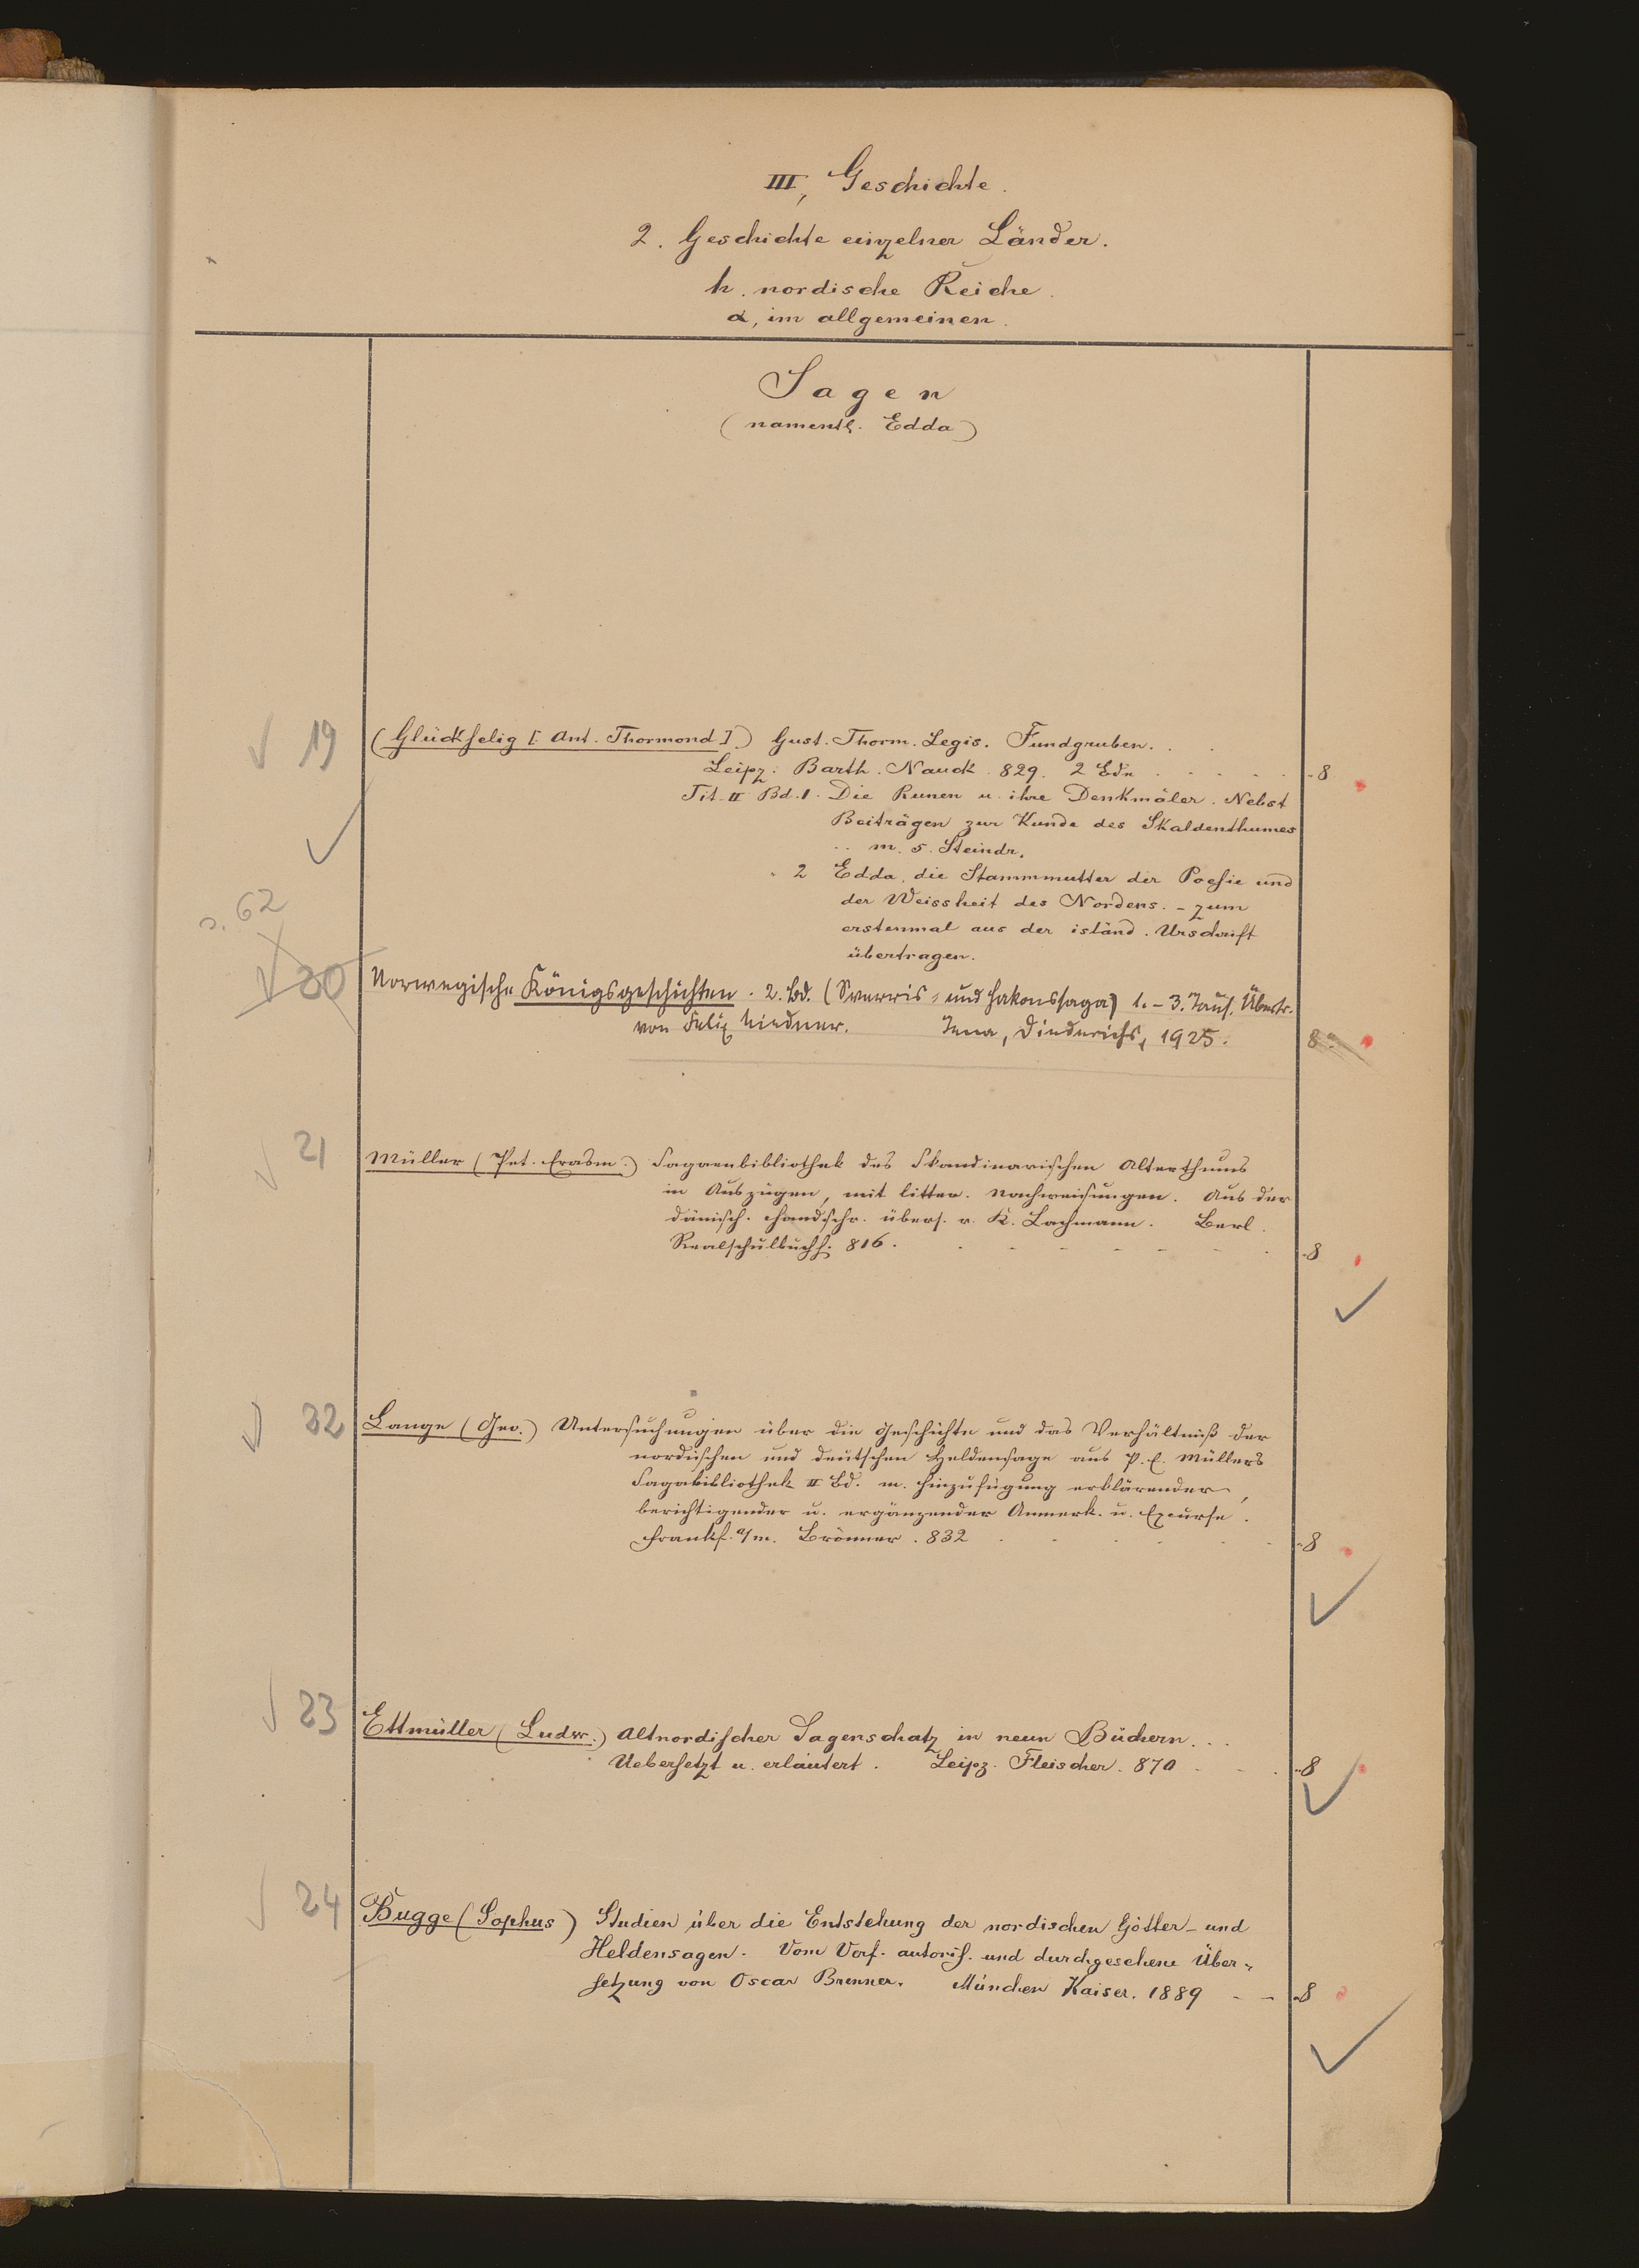 III, Geschichte.
2. Geschichte einzelner Länder.
h. nordische Reiche.
α, im allgemeinen.
Sagen
(namentl. Edda)
19 (Glückselig [. Ant. Thormond].) Gust. Thorm. Legis. Fundgruben. . .
Leipz: Barth. Nauck. 829. 2 Bde . . . . . -8
Tit. II Bd. 1. Die Runen u. ihre Denkmäler. Nebst
Beiträgen zur Kunde des Skaldenthumes
.. m. 5. Steindr.
" 2 Edda, die Stammmutter der Poesie und
der Weissheit des Nordens. - zum
erstenmal aus der isländ. Urschrift
übertragen.
s. 62
20 Norwegische Königsgeschichten. 2. Bd. (Sverris- und Hakonssaga) 1.-3. Taus. Übertr.
von Felix Niedner. Jena, Diederichs, 1925. 8°
21 Müller (Pet. Erasm.) Sagaenbibliothek des Skandinavischen Alterthums
in Auszügen, mit litter. Nachweisungen. Aus der
dänisch. Handschr. übers. v. K. Lachmann. Berl.
Realschulbuchh. 816. . . . . . . -8
22 Lange (Geo.) Untersuchungen über die Geschichte und das Verhältniß der
nordischen und deutschen Heldensage aus P. E. Müllers
Sagabibliothek II Bd. m. Hinzufügung erklärender,
berichtigender u. ergänzender Anmerk. u. Excurse.
Frankf. a/m. Brönner. 832 . . . . . -8
23 Ettmüller (Ludw.) Altnordischer Sagenschatz in neun Büchern. . .
Uebersetzt u. erläutert. Leipz. Fleischer. 870 . . . -8
24 Bugge (Sophus) Studien über die Entstehung der nordischen Götter- und
Heldensagen. Vom Verf. autoris. und durchgesehene Über-
setzung von Oscar Brenner. München Kaiser. 1889 - - -8